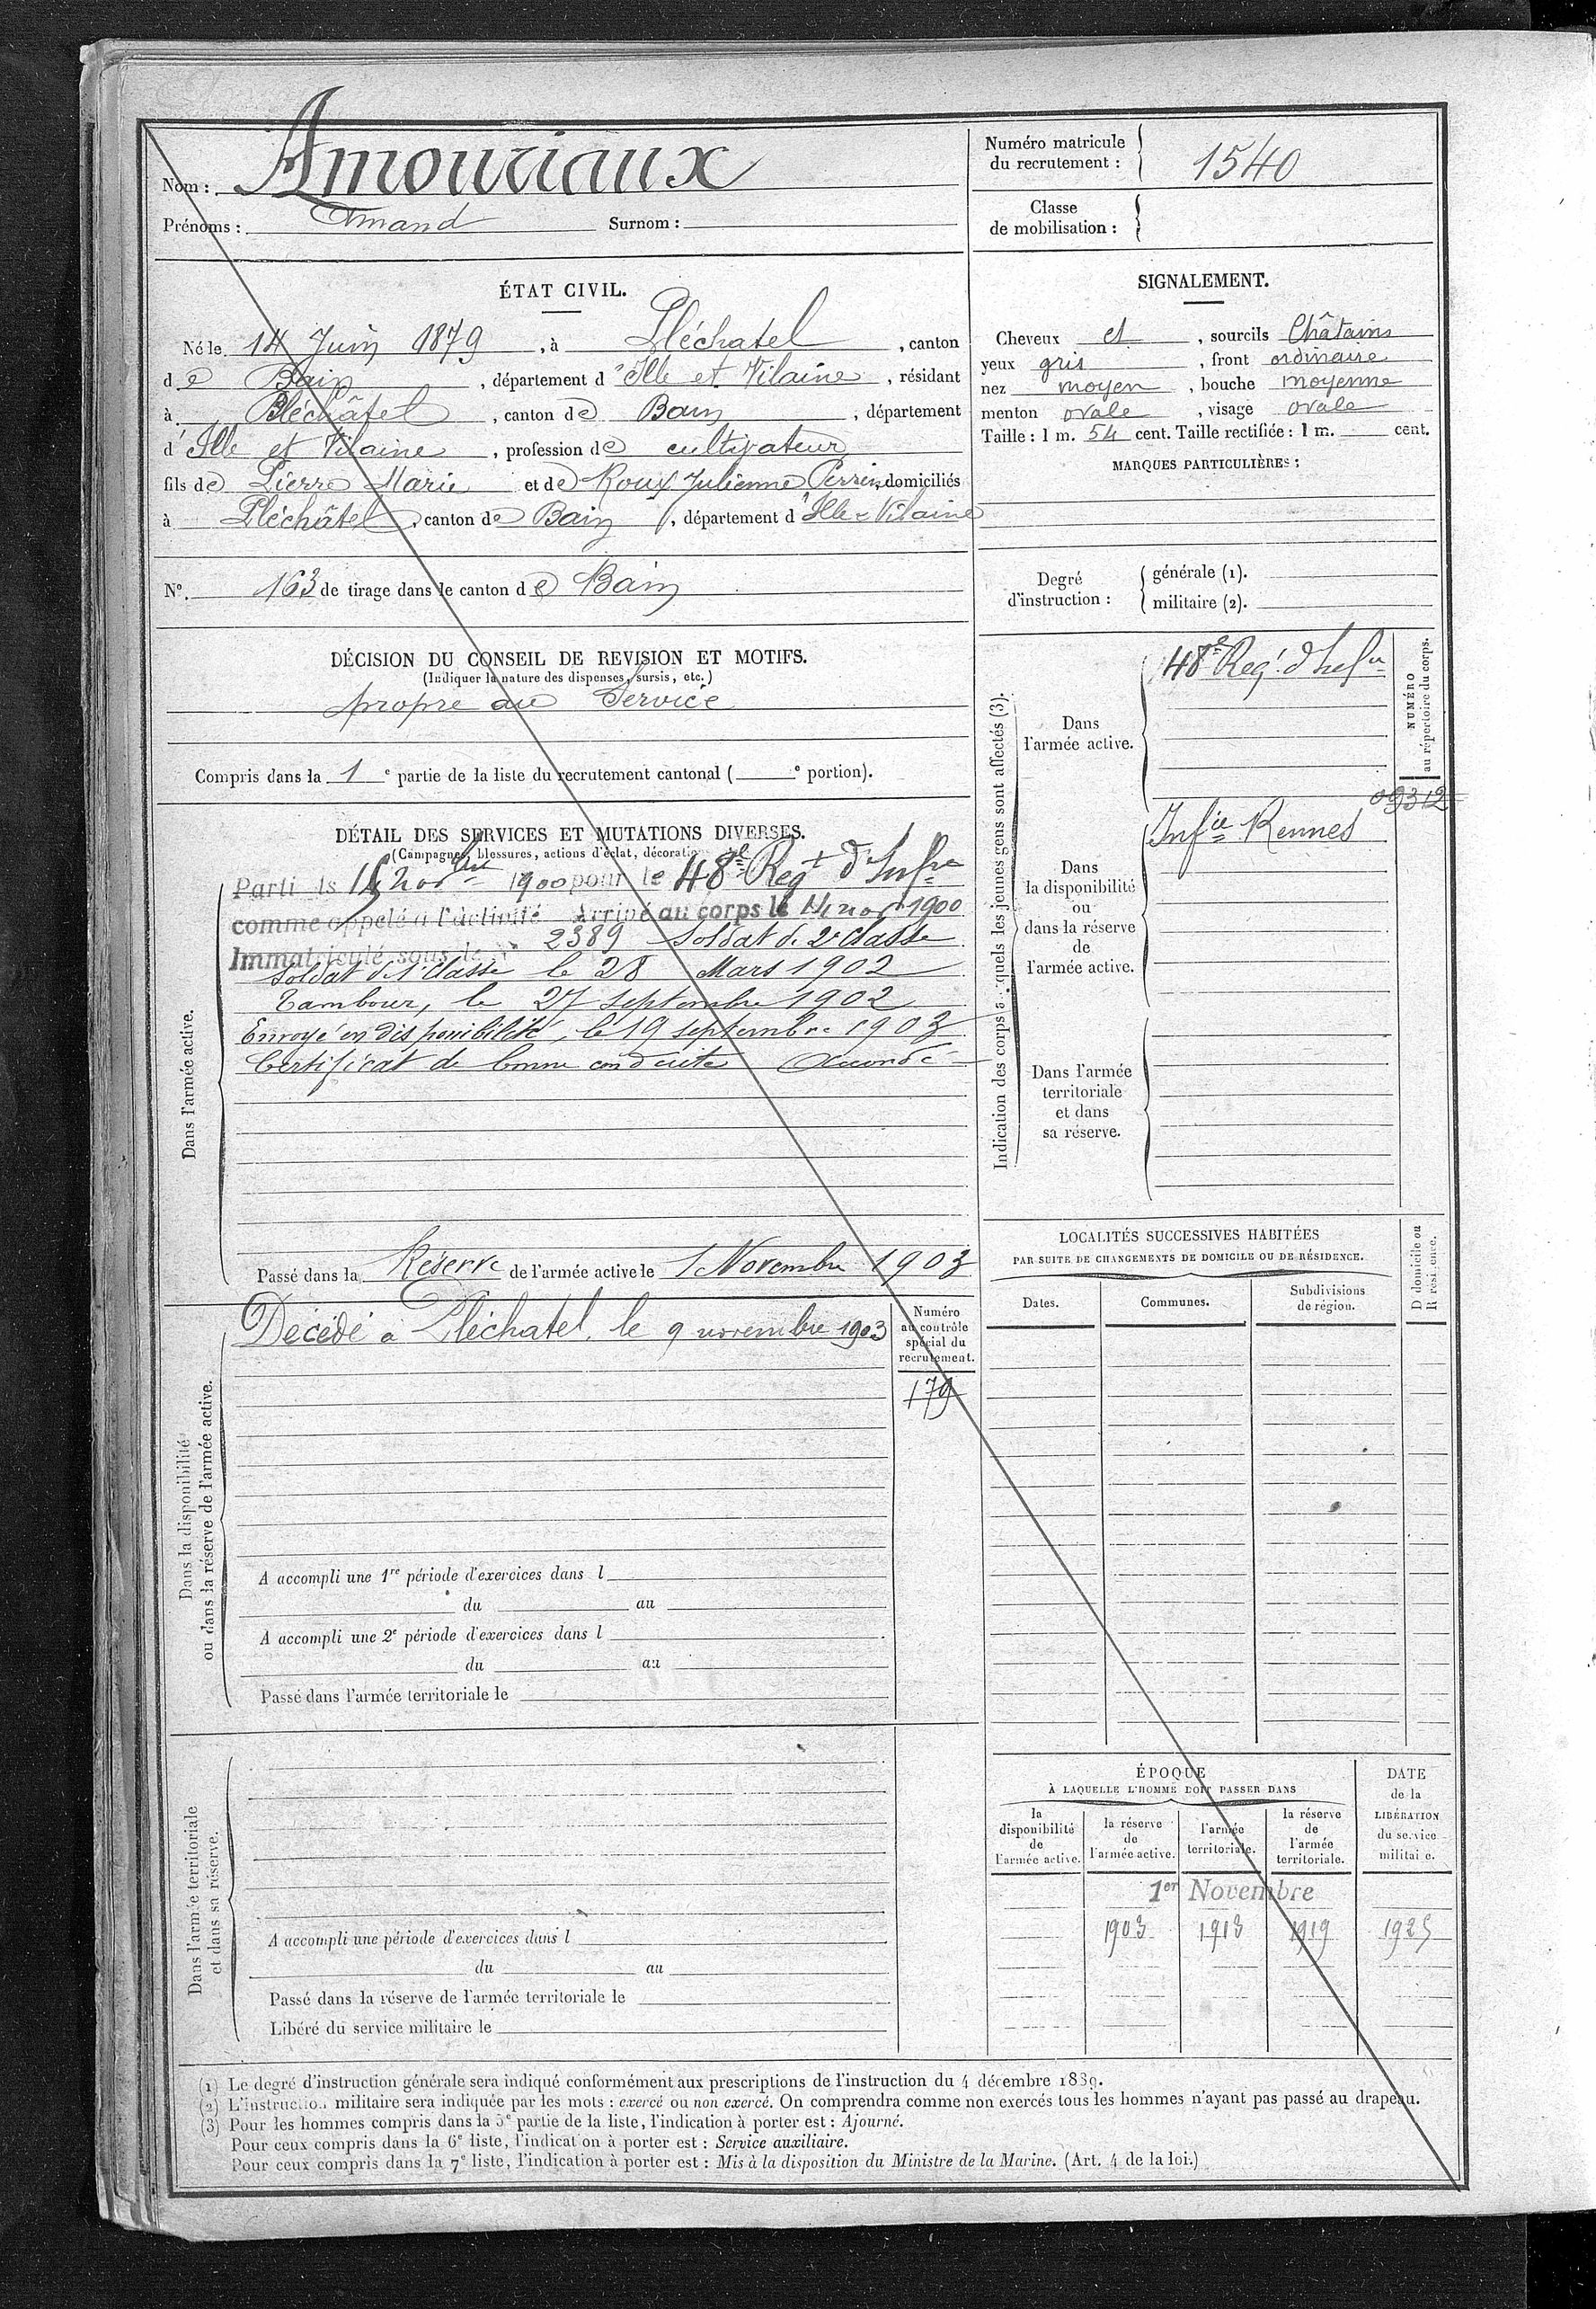 Nom : Amouriaux
Prénoms : Amand Surnom :
Numéro matricule
du recrutement : 1540
Classe
de mobilisation :
ÉTAT CIVIL.
Né le 14 Juin 1879, à Pléchatel, canton
de Bain, département d'Ille et Vilaine, résidant
à Pléchâtel, canton de Bain, département
d'Ille et Vilaine, profession de cultivateur
fils de Pierre Marie et de Roux Julienne Perrine, domiciliés
à Pléchâtel, canton de Bain, département d'Ille & Vilaine
N° 163 de tirage dans le canton de Bain
SIGNALEMENT.
Cheveux et, sourcils Châtains
yeux gris, front ordinaire
nez moyen, bouche moyenne
menton ovale, visage ovale
Taille : 1 m. 54 cent. Taille rectifiée : 1 m. cent.
MARQUES PARTICULIÈRES :
Degré
d'instruction :
générale (1).
militaire (2).
DÉCISION DU CONSEIL DE REVISION ET MOTIFS.
(Indiquer la nature des dispenses, sursis, etc.)
propre au Service
Compris dans la 1e partie de la liste du recrutement cantonal ( e portion).
DÉTAIL DES SERVICES ET MUTATIONS DIVERSES.
(Campagnes, blessures, actions d'éclat, décorations
Dans l'armée active.
Parti le 15 novbre 1900 pour le 48e Regt d'Infie
comme appelé à l'activité Arrivé au corps le 14 nov 1900
Immatriculé sous le n° 2389 Soldat de 2e classe
Soldat de 1e classe le 28 Mars 1902
Tambour, le 27 septembre 1902
Envoyé en disponibilité, le 19 septembre 1903
Certificat de bonne conduite Accordé
Passé dans la Réserve de l'armée active le 1 Novembre 1903
Indication des corps auxquels les jeunes gens sont affectés (3).
Dans
l'armée active.
48e Reg. d'Infie
NUMÉRO
au répertoire du corps.
09312
Dans
la disponibilité
ou
dans la réserve
de
l'armée active.
Infie Rennes
Dans l'armée
territoriale
et dans
sa réserve.
LOCALITÉS SUCCESSIVES HABITÉES
PAR SUITE DE CHANGEMENTS DE DOMICILE OU DE RÉSIDENCE.
Dates.
Communes.
Subdivisions
de région.
D domicile ou
R résidence.
Dans la disponibilité
ou dans la réserve de l'armée active.
Décédé à Pléchatel, le 9 novembre 1903
Numéro
au contrôle
spécial du
recrutement.
179
A accompli une 1re période d'exercices dans l
du au
A accompli une 2e période d'exercices dans l
du au
Passé dans l'armée territoriale le
Dans l'armée territoriale
et dans sa réserve.
A accompli une période d'exercices dans l
du au
Passé dans la réserve de l'armée territoriale le
Libéré du service militaire le
ÉPOQUE
À LAQUELLE L'HOMME DOIT PASSER DANS
la
disponibilité
de
l'armée active.
la réserve
de
l'armée active.
l'armée
territoriale.
la réserve
de
l'armée
territoriale.
DATE
de la
LIBÉRATION
du service
militaire.
1er Novembre
1903 1913 1919 1925
(1) Le degré d'instruction générale sera indiqué conformément aux prescriptions de l'instruction du 4 décembre 1889.
(2) L'instruction militaire sera indiquée par les mots : exercé ou non exercé. On comprendra comme non exercés tous les hommes n'ayant pas passé au drapeau.
(3) Pour les hommes compris dans la 5e partie de la liste, l'indication à porter est : Ajourné.
Pour ceux compris dans la 6e liste, l'indication à porter est : Service auxiliaire.
Pour ceux compris dans la 7e liste, l'indication à porter est : Mis à la disposition du Ministre de la Marine. (Art. 4 de la loi.)